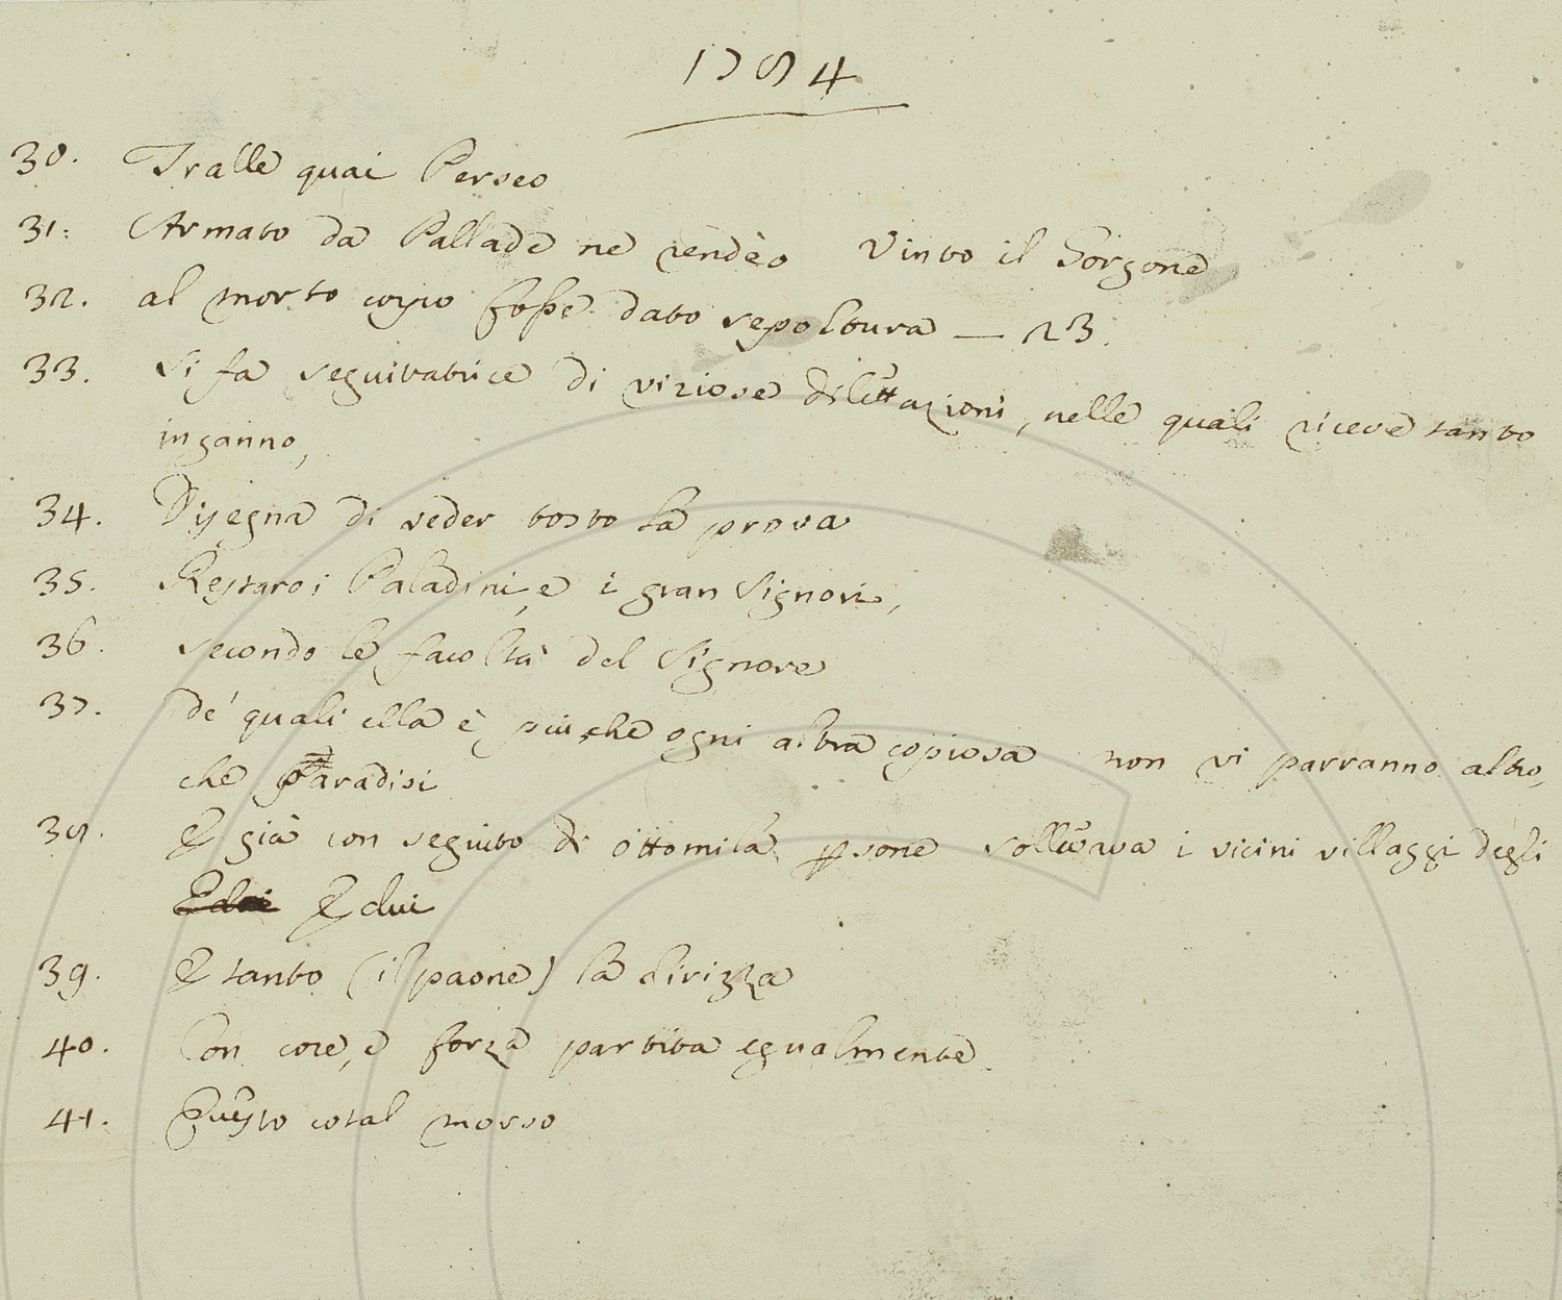 1784
30. Tralle quai Perseo
31. Armato da Pallade ne rendèo Vinto il Gorgone
32. al morto corpo fosse dato sepoltura — 23.
33. si fa seguitatrice di viziose dilettazioni, nelle quali riceve tanto
inganno,
34. Disegna di veder tosto la prova
35. Restaro i Paladini, e i gran Signori,
36. secondo le facoltà del Signore
37. de' quali ella è più che ogni altra copiosa non vi parranno altro,
che Paradisi
38. E già con seguito di ottomila persone sollevava i vicini villaggi degli
Edui Edui
39. E tanto (il paone) la dirizza
40. Con core, e forza partita egualmente.
41. Questo cotal morso